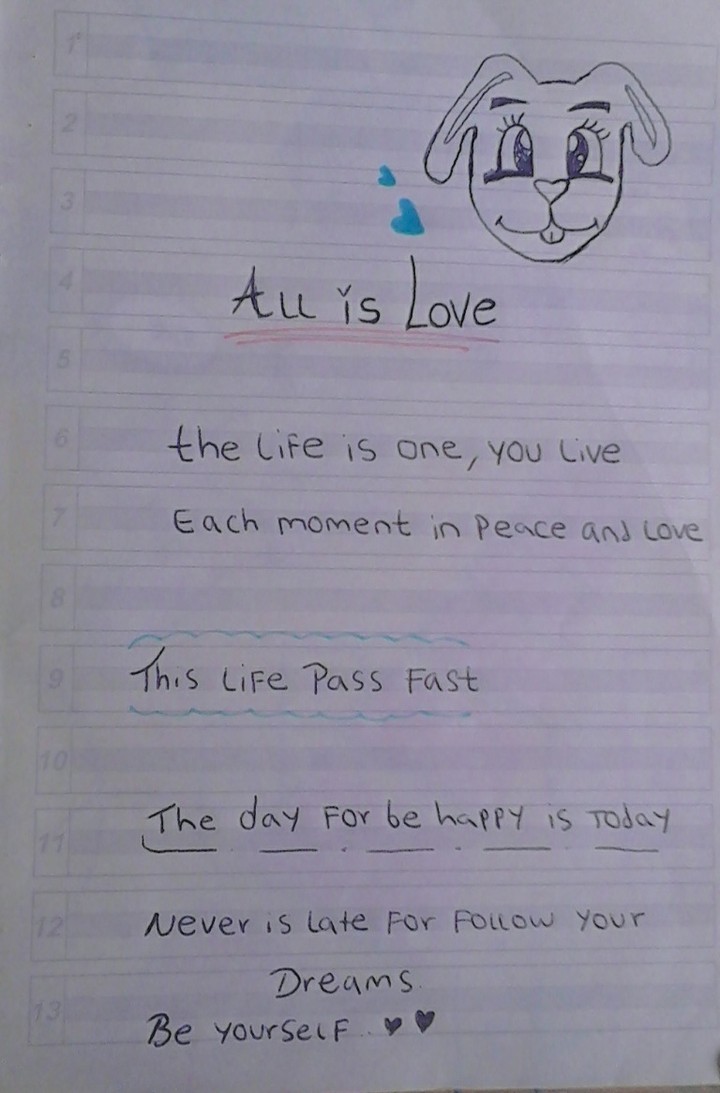 1
2
3
4
All is Love
5
6
the Life is one, you Live
7
Each moment in Peace and Love
8
9
This Life Pass Fast
10
The day For be happy is Today
11
12
Never is Late For Follow your
Dreams.
13
Be yourself..